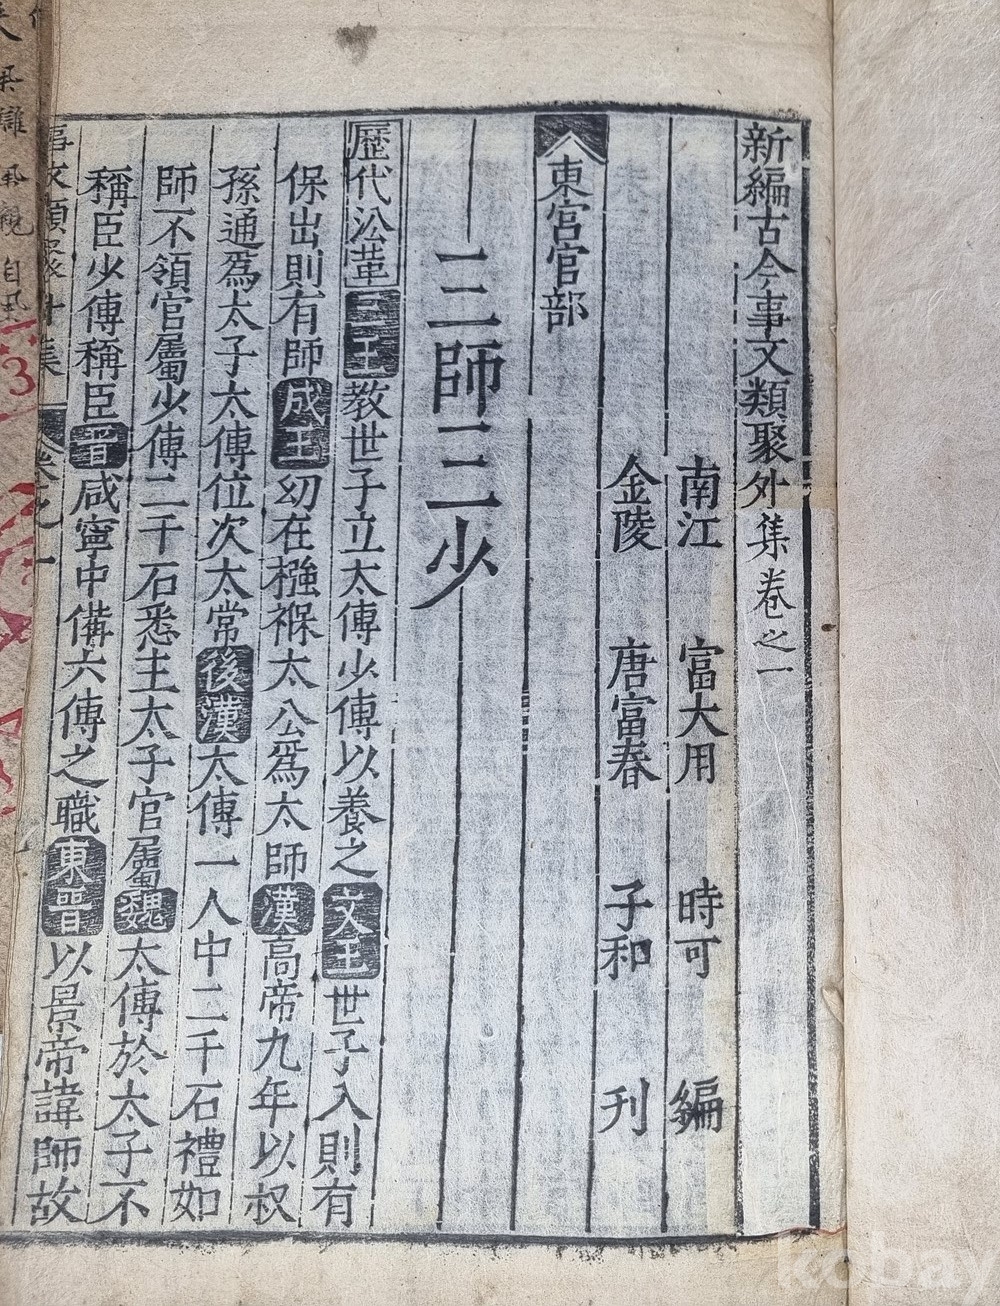 新編古今事文類聚外集卷之一
南江 富大用 時可 編
金陵 唐富春 子和 刊
東宮官部
三師三少
歷代㳂革三王教世子立太傅少傅以養之文王世子入則有
保出則有師成王幼在襁褓太公爲太師漢高帝九年以叔
孫通爲太子太傅位次太常後漢太傅一人中二千石禮如
師不領官屬少傅二千石悉主太子官屬魏太傅於太子不
稱臣少傅稱臣晉咸寧中備六傅之職東晉以景帝諱師故
kobay